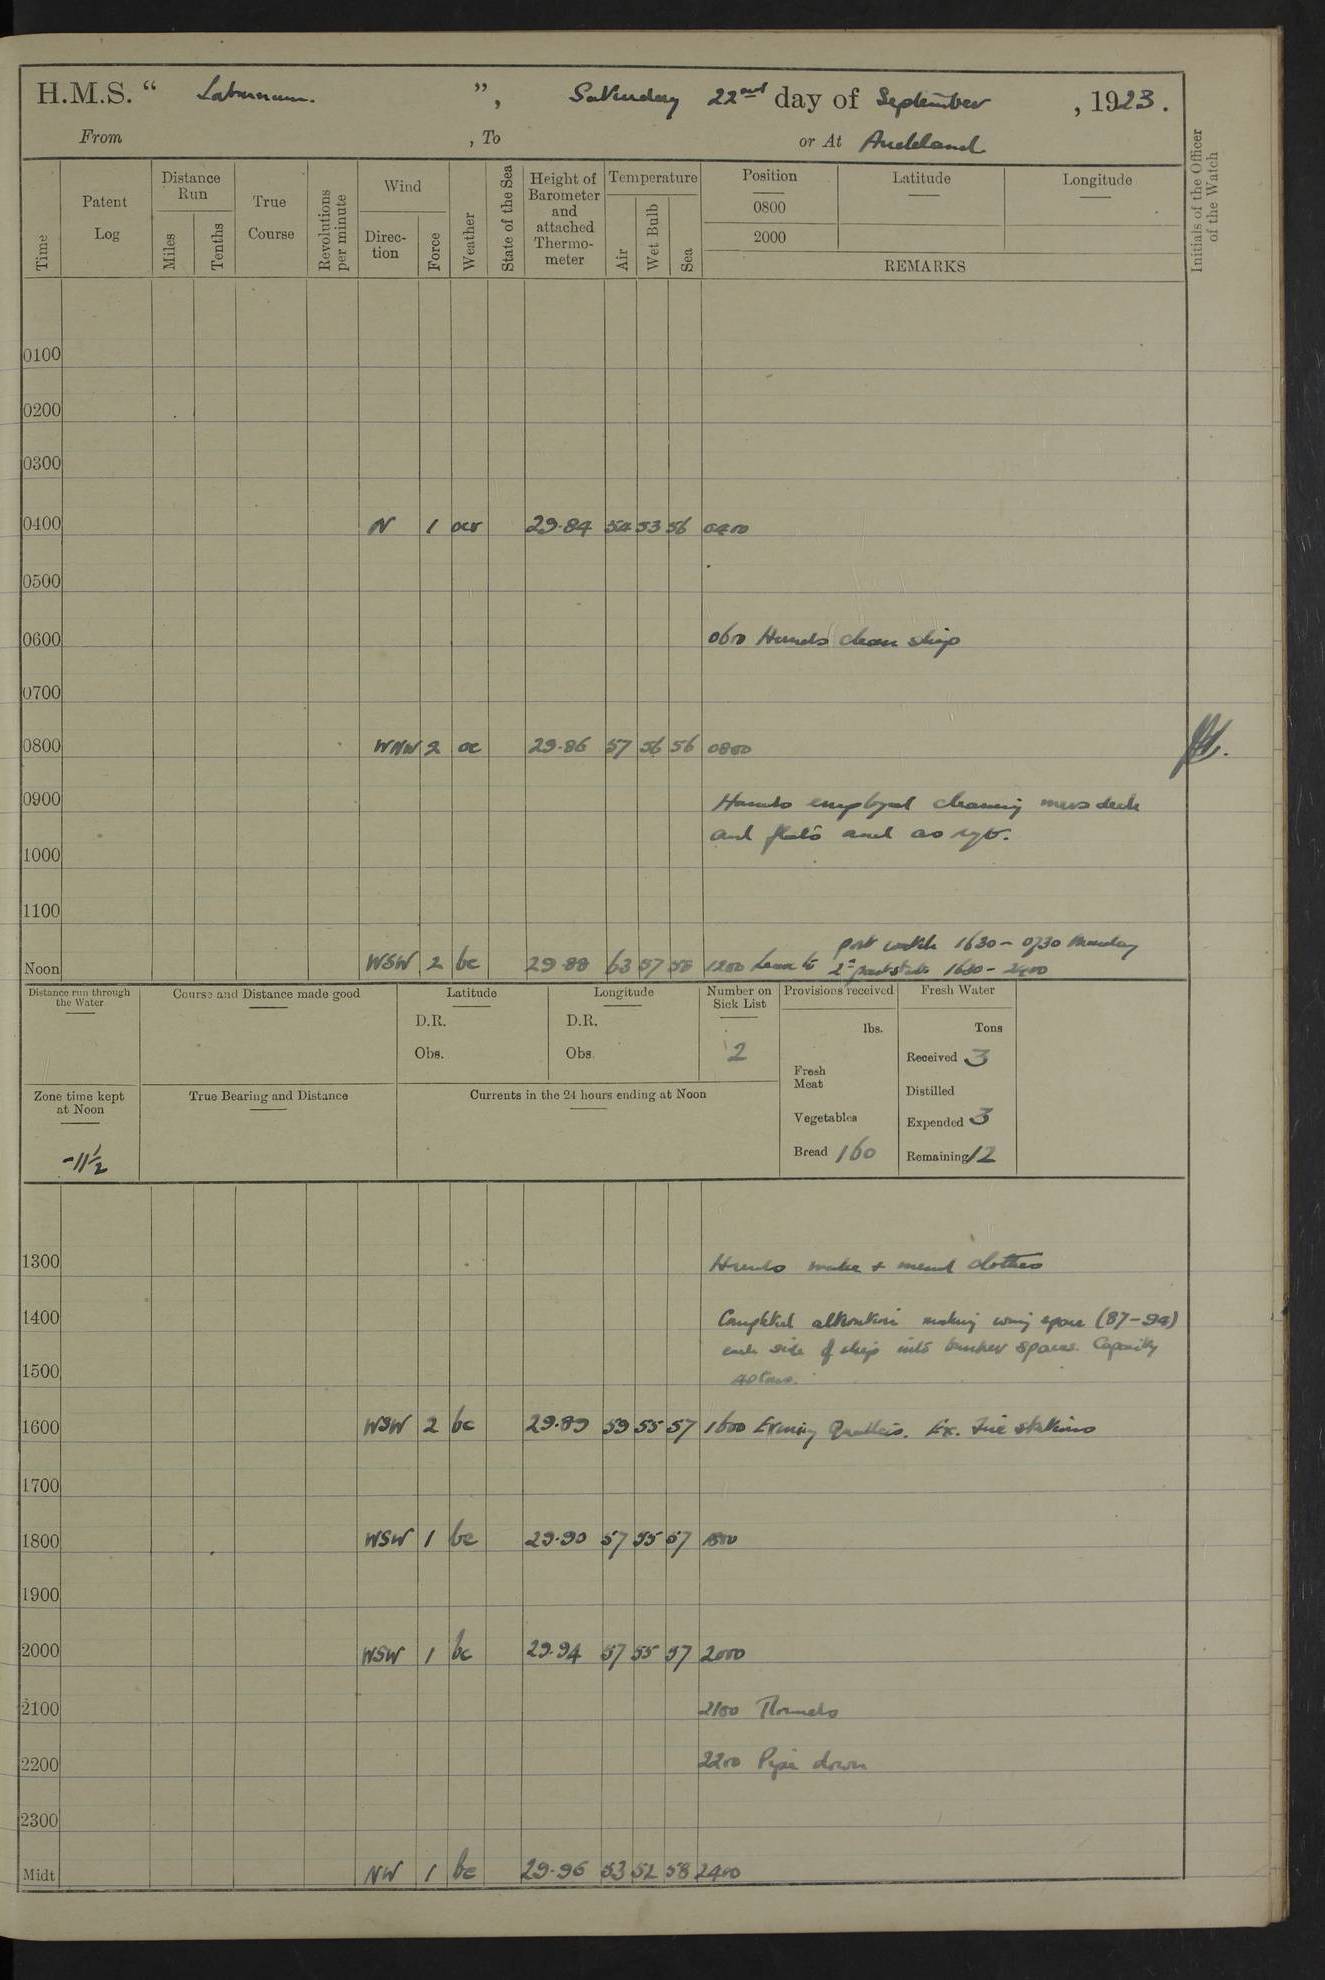 H.M.S. “ Laburnum. ”, Saturday 22nd day of September, 1923.
From , To or At Auckland
Time
Patent Log
Distance Run
Miles
Tenths
True Course
Revolutions per minute
Wind
Direc-tion
Force
Weather
State of the Sea
Height of Barometer and attached Thermo-meter
Temperature
Air
Wet Bulb
Sea
Position
0800
2000
Latitude
Longitude
REMARKS
Initials of the Officer of the Watch
0100
0200
0300
0400 N 1 ocr 29.84 54 53 56 0400
0500
0600 0600 Hands clean ship
0700
0800 WNW 2 oc 29.86 57 56 56 0800
0900 Hands employed cleaning mess deck
and flats and as req.
1000
1100
port watch 1630 - 0730 Monday
Noon WSW 2 bc 29.88 63 57 58 1200 Leave to 2nd part stbd 1630 - 2400
Distance run through the Water
Course and Distance made good
Latitude
D.R.
Obs.
Longitude
D.R.
Obs
Number on Sick List
2
Provisions received
lbs.
Fresh Meat
Vegetables
Bread 160
Fresh Water
Tons
Received 3
Distilled
Expended 3
Remaining 12
Zone time kept at Noon
-11½
True Bearing and Distance
Currents in the 24 hours ending at Noon
1300 Hands make + mend clothes
1400 Completed alteration making wing space (87-94)
each side of ship into bunker spaces. Capacity
1500 40 tons.
1600 WSW 2 bc 29.89 59 55 57 1600 Evening Quarters. Ex. Fire stations
1700
1800 WSW 1 bc 29.90 57 55 57 1800
1900
2000 WSW 1 bc 29.94 57 55 57 2000
2100 2100 Rounds
2200 2200 Pipe down
2300
Midt NW 1 bc 29.96 53 52 58 2400